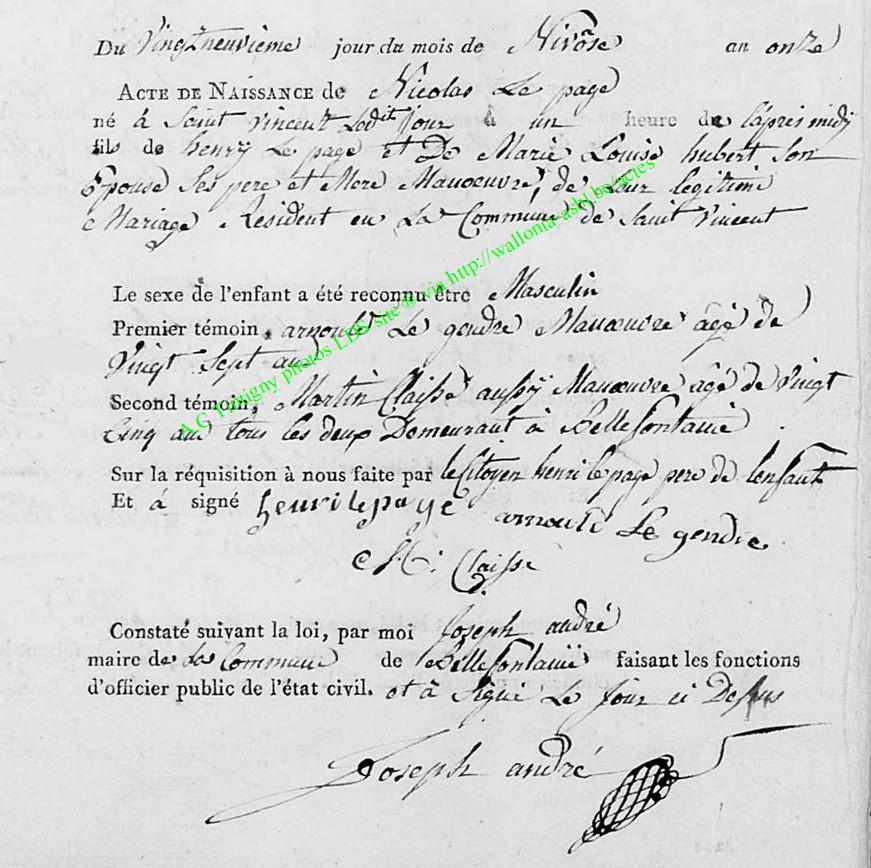 Du Vingt neuvieme jour du mois de Nivôse an onze
ACTE DE NAISSANCE de Nicolas Le page
né à Saint Vincent Ledit Jour à un heure du l'apres midy
fils de henry Le page et De Marie Louise hubert Son
Epouse Ses pere et Mere Manoeuvre, de Leur legitime
Mariage Resident en La Commune de Saint Vincent
Le sexe de l'enfant a été reconnu être Masculin
Premier témoin, arnould Le gendre Manoeuvre âgé de
Vingt Sept ans
Second témoin, Martin Claisse aussy Manoeuvre âgé de Vingt
Cinq ans tous les deux Demeurant à Bellefontaine.
Sur la réquisition à nous faite par le Citoyen henri le page pere de lenfant
Et à signé henri lepage arnould Le gendre
M: Claisse
Constaté suivant la loi, par moi Joseph andré
maire de la Commune de Bellefontaine faisant les fonctions
d'officier public de l'état civil. et à Signé Le Jour ci Dessus
Joseph andré
A.G. Tintigny photos LDS site ® via http://wallonia-asbl.be/actes